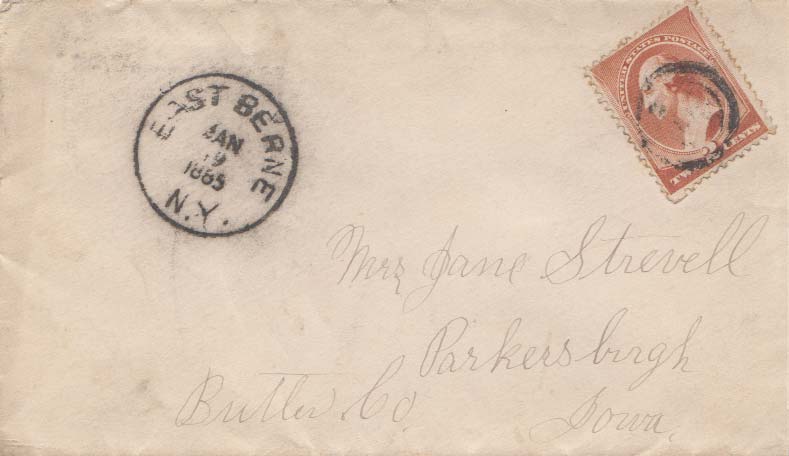 EAST BERNE
JAN
19
1885
N.Y.
UNITED STATES POSTAGE
2
TWO CENTS
Mrs Jane Strevell
Parkersburgh
Butler Co
Iowa.